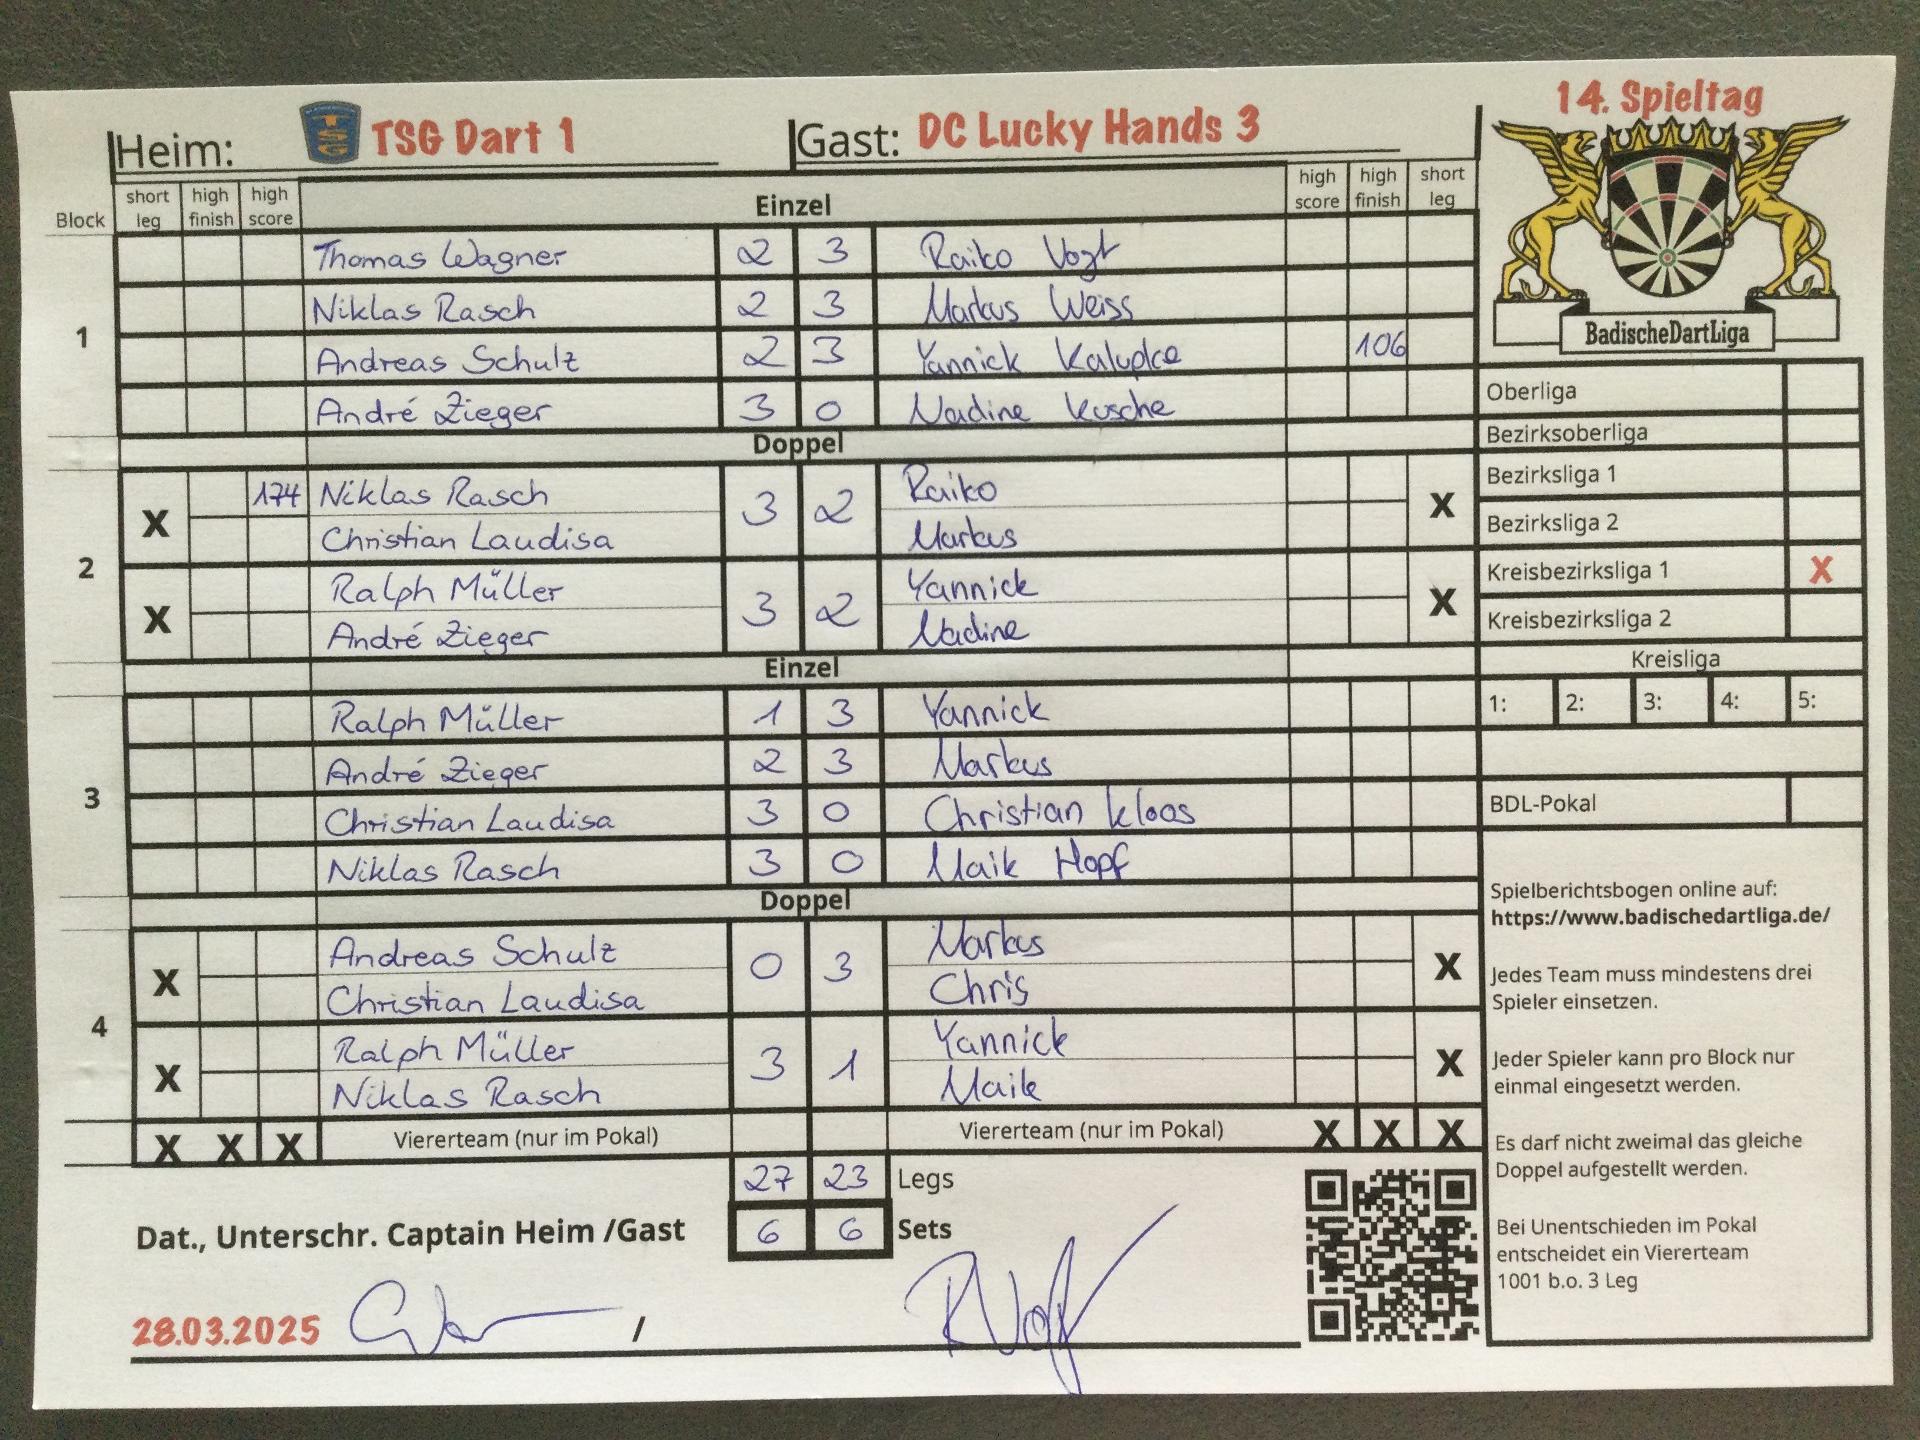 14. Spieltag
Heim: TSG TSG Dart 1 Gast: DC Lucky Hands 3
Block short leg high finish high score Einzel high score high finish short leg
1
Thomas Wagner 2 3 Raiko Vogt
Niklas Rasch 2 3 Markus Weiss
Andreas Schulz 2 3 Yannick Kalupke 106
André Zieger 3 0 Nadine Kusche
Doppel
2
X 174 Niklas Rasch 3 2 Raiko X
Christian Laudisa Markus
X Ralph Müller 3 2 Yannick X
André Zieger Nadine
Einzel
3
Ralph Müller 1 3 Yannick
André Zieger 2 3 Markus
Christian Laudisa 3 0 Christian Kloos
Niklas Rasch 3 0 Maik Hopf
Doppel
4
X Andreas Schulz 0 3 Markus X
Christian Laudisa Chris
X Ralph Müller 3 1 Yannick X
Niklas Rasch Maik
X X X Viererteam (nur im Pokal) Viererteam (nur im Pokal) X X X
27 23 Legs
Dat., Unterschr. Captain Heim /Gast 6 6 Sets
28.03.2025 /
BadischeDartLiga
Oberliga
Bezirksoberliga
Bezirksliga 1
Bezirksliga 2
Kreisbezirksliga 1 X
Kreisbezirksliga 2
Kreisliga
1: 2: 3: 4: 5:
BDL-Pokal
Spielberichtsbogen online auf:
https://www.badischedartliga.de/
Jedes Team muss mindestens drei
Spieler einsetzen.
Jeder Spieler kann pro Block nur
einmal eingesetzt werden.
Es darf nicht zweimal das gleiche
Doppel aufgestellt werden.
Bei Unentschieden im Pokal
entscheidet ein Viererteam
1001 b.o. 3 Leg